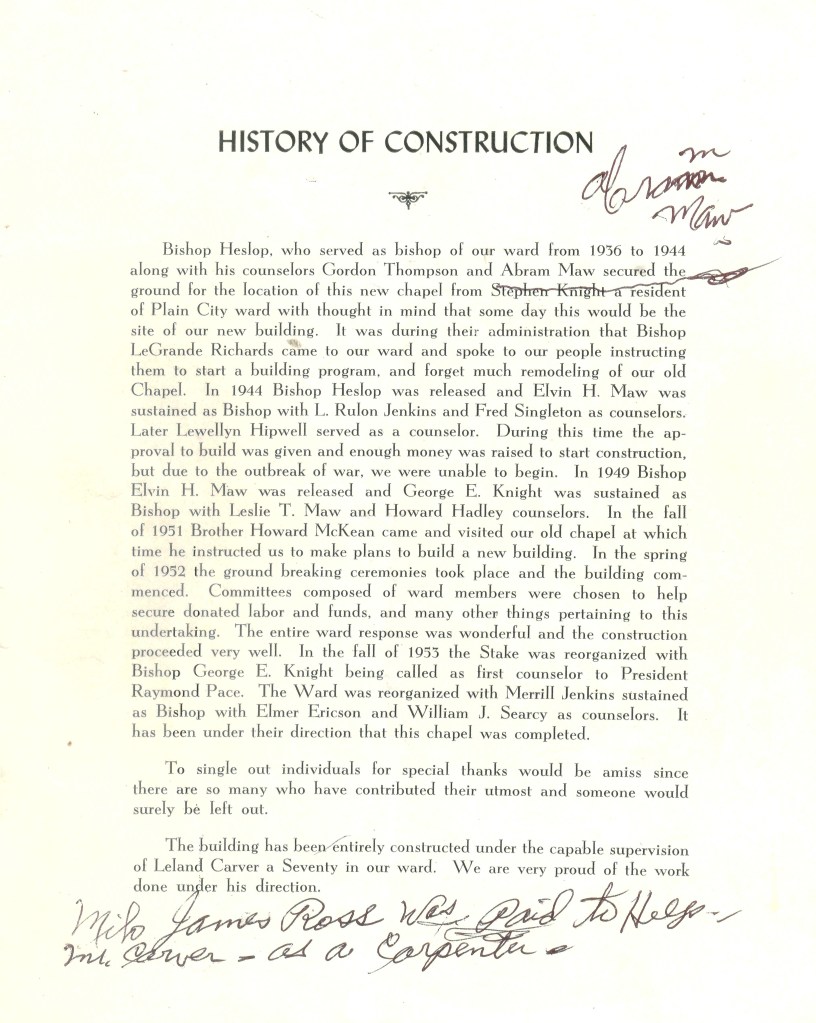 HISTORY OF CONSTRUCTION
Abram m
Maw
Bishop Heslop, who served as bishop of our ward from 1936 to 1944
along with his counselors Gordon Thompson and Abram Maw secured the
ground for the location of this new chapel from Stephen Knight a resident
of Plain City ward with thought in mind that some day this would be the
site of our new building. It was during their administration that Bishop
LeGrande Richards came to our ward and spoke to our people instructing
them to start a building program, and forget much remodeling of our old
Chapel. In 1944 Bishop Heslop was released and Elvin H. Maw was
sustained as Bishop with L. Rulon Jenkins and Fred Singleton as counselors.
Later Lewellyn Hipwell served as a counselor. During this time the ap-
proval to build was given and enough money was raised to start construction,
but due to the outbreak of war, we were unable to begin. In 1949 Bishop
Elvin H. Maw was released and George E. Knight was sustained as
Bishop with Leslie T. Maw and Howard Hadley counselors. In the fall
of 1951 Brother Howard McKean came and visited our old chapel at which
time he instructed us to make plans to build a new building. In the spring
of 1952 the ground breaking ceremonies took place and the building com-
menced. Committees composed of ward members were chosen to help
secure donated labor and funds, and many other things pertaining to this
undertaking. The entire ward response was wonderful and the construction
proceeded very well. In the fall of 1953 the Stake was reorganized with
Bishop George E. Knight being called as first counselor to President
Raymond Pace. The Ward was reorganized with Merrill Jenkins sustained
as Bishop with Elmer Ericson and William J. Searcy as counselors. It
has been under their direction that this chapel was completed.
To single out individuals for special thanks would be amiss since
there are so many who have contributed their utmost and someone would
surely be left out.
The building has been entirely constructed under the capable supervision
of Leland Carver a Seventy in our ward. We are very proud of the work
done under his direction.
Milo James Ross Was Paid to Help -
Mr. Carver - as a Carpenter -